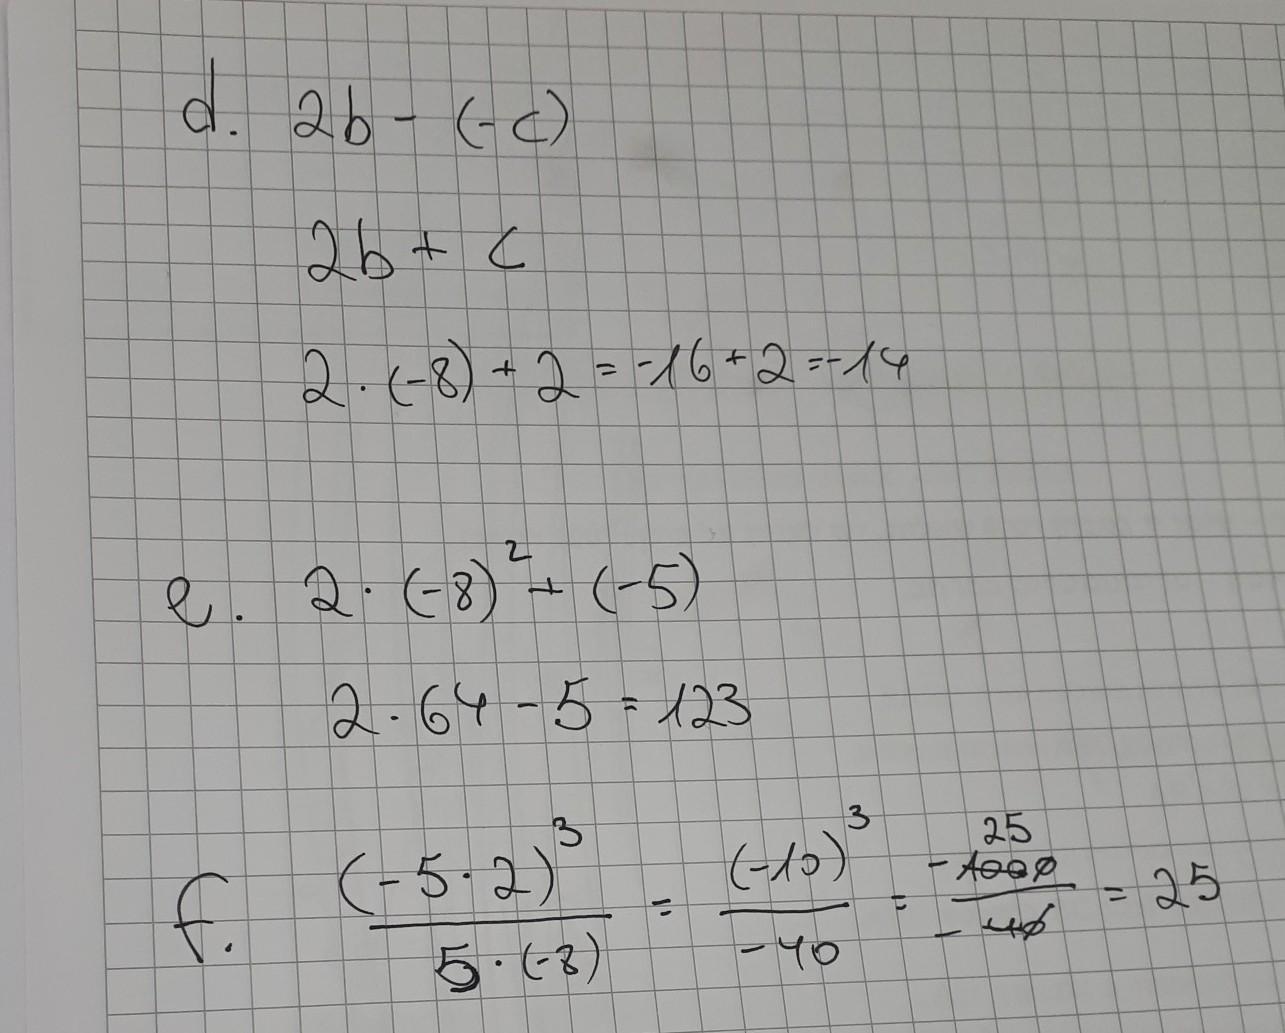 d. 2b - (-c)
2b + c
2 · (-8) + 2 = -16 + 2 = -14
e. 2 · (-8)² + (-5)
2 · 64 - 5 = 123
f. (-5 · 2)³ / 5 · (-8) = (-10)³ / -40 = -1000 / -40 = 25
25